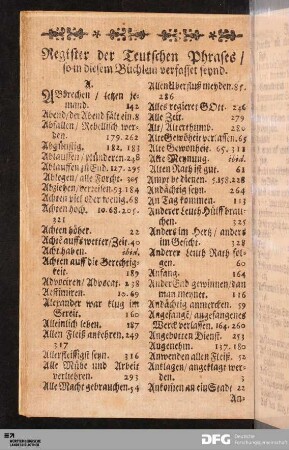 Register der Teutschen Phrases /
so in diesem Büchlein verfasset seynd.
A.
ABbrechen / letzen je-
mand. 142
Abend / der Abend fält ein. 8
Abfallen / Rebellisch wer-
den. 179. 262
Abgünstig. 182. 183
Ablauffen / plünderen 238
Ablauffen zu End. 127. 295
Ablegen / alte Forcht. 305
Abziehen / verreisen. 53. 184
Achten viel oder wenig. 68
Achten hoch. 10. 68. 205.
321
Achten höher. 22
Acht auffs wetter / Zeit. 40
Acht haben. ibid.
Achten auff die Gerechtig-
keit. 189
Advociren / Advocat. 238
Aestimiren. 10. 69
Alexander war klug im
Streit. 160
Alleinlich leben. 187
Allen Fleiß ankehren. 249
317
Allerfleissigst seyn. 316
Alle Mühe und Arbeit
verliehren. 293
Alle Macht gebrauchen. 54
Allen Uberfluß meyden. 85.
286
Alles regieret GOtt. 236
Alle Zeit. 279
Alt / Alterthumb. 280
Alte Gewonheit verlassen. 65
Alte Gewonheit. 65. 311
Alte Meynung. ibid.
Allen Rath ist gut. 61
Ampt bedienen. 5. 158. 228
Andächtig seyn. 264
An Tag kommen. 113
Anderer Leuth Hülff brau-
chen. 125
Anders im Hertz / anders
im Gesicht. 328
Anderer Leuth Rath fol-
gen. 60
Anfang. 164
An der End gewinnen / dan
man meynet. 116
Andächtig anmercken. 59
Angefangt / angefangenes
Werck verlassen. 164. 260
Angebotten Dienst. 253
Angenehm. 137. 180
Anwenden allen Fleiß. 52
Anklagen / angeklagt wer-
den. 3
Ankommen an ein Stade 22
An-
DFG Deutsche
Forschungsgemeinschaft